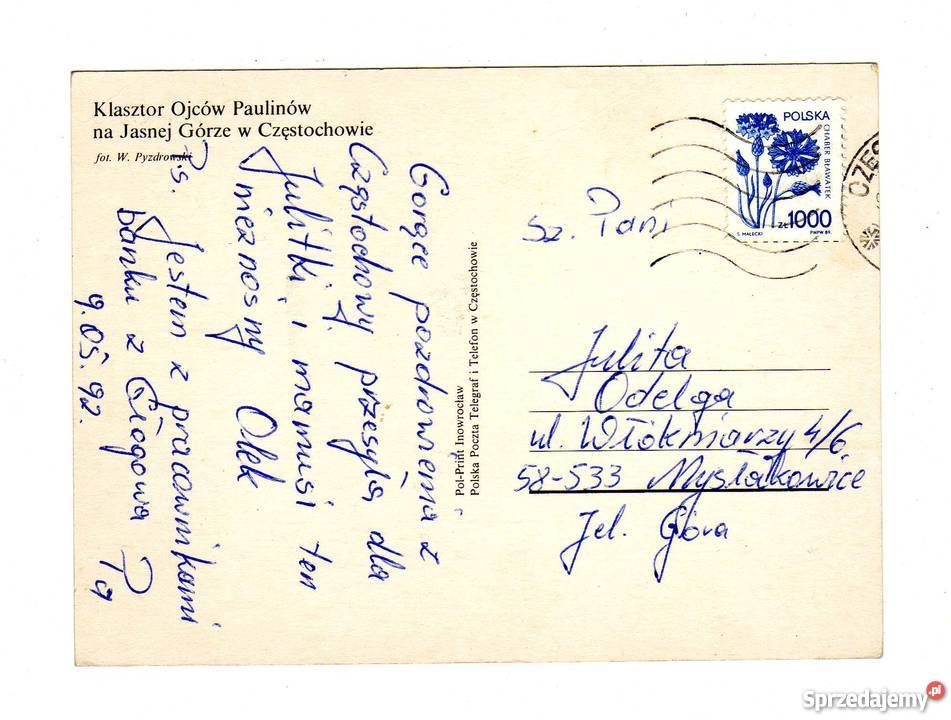 Klasztor Ojców Paulinów
na Jasnej Górze w Częstochowie
fot. W. Pyzdrowski
Gorące pozdrowienia z
Częstochowy przesyła dla
Julitki i mamusi ten
nieznośny Olek
P.s. Jestem z pracownikami
banku z Głogowa Pa
9.05.92.
Pol-Print Inowrocław
Polska Poczta Telegraf i Telefon w Częstochowie
POLSKA
CHABER BŁAWATEK
zł 1000
S. MAŁECKI
PWPW 89.
CZĘS
Sz. Pani
Julita
Odelga
ul. Włókniarzy 4/6
58-533 Mysłakowice
Jel. Góra
Sprzedajemy.pl